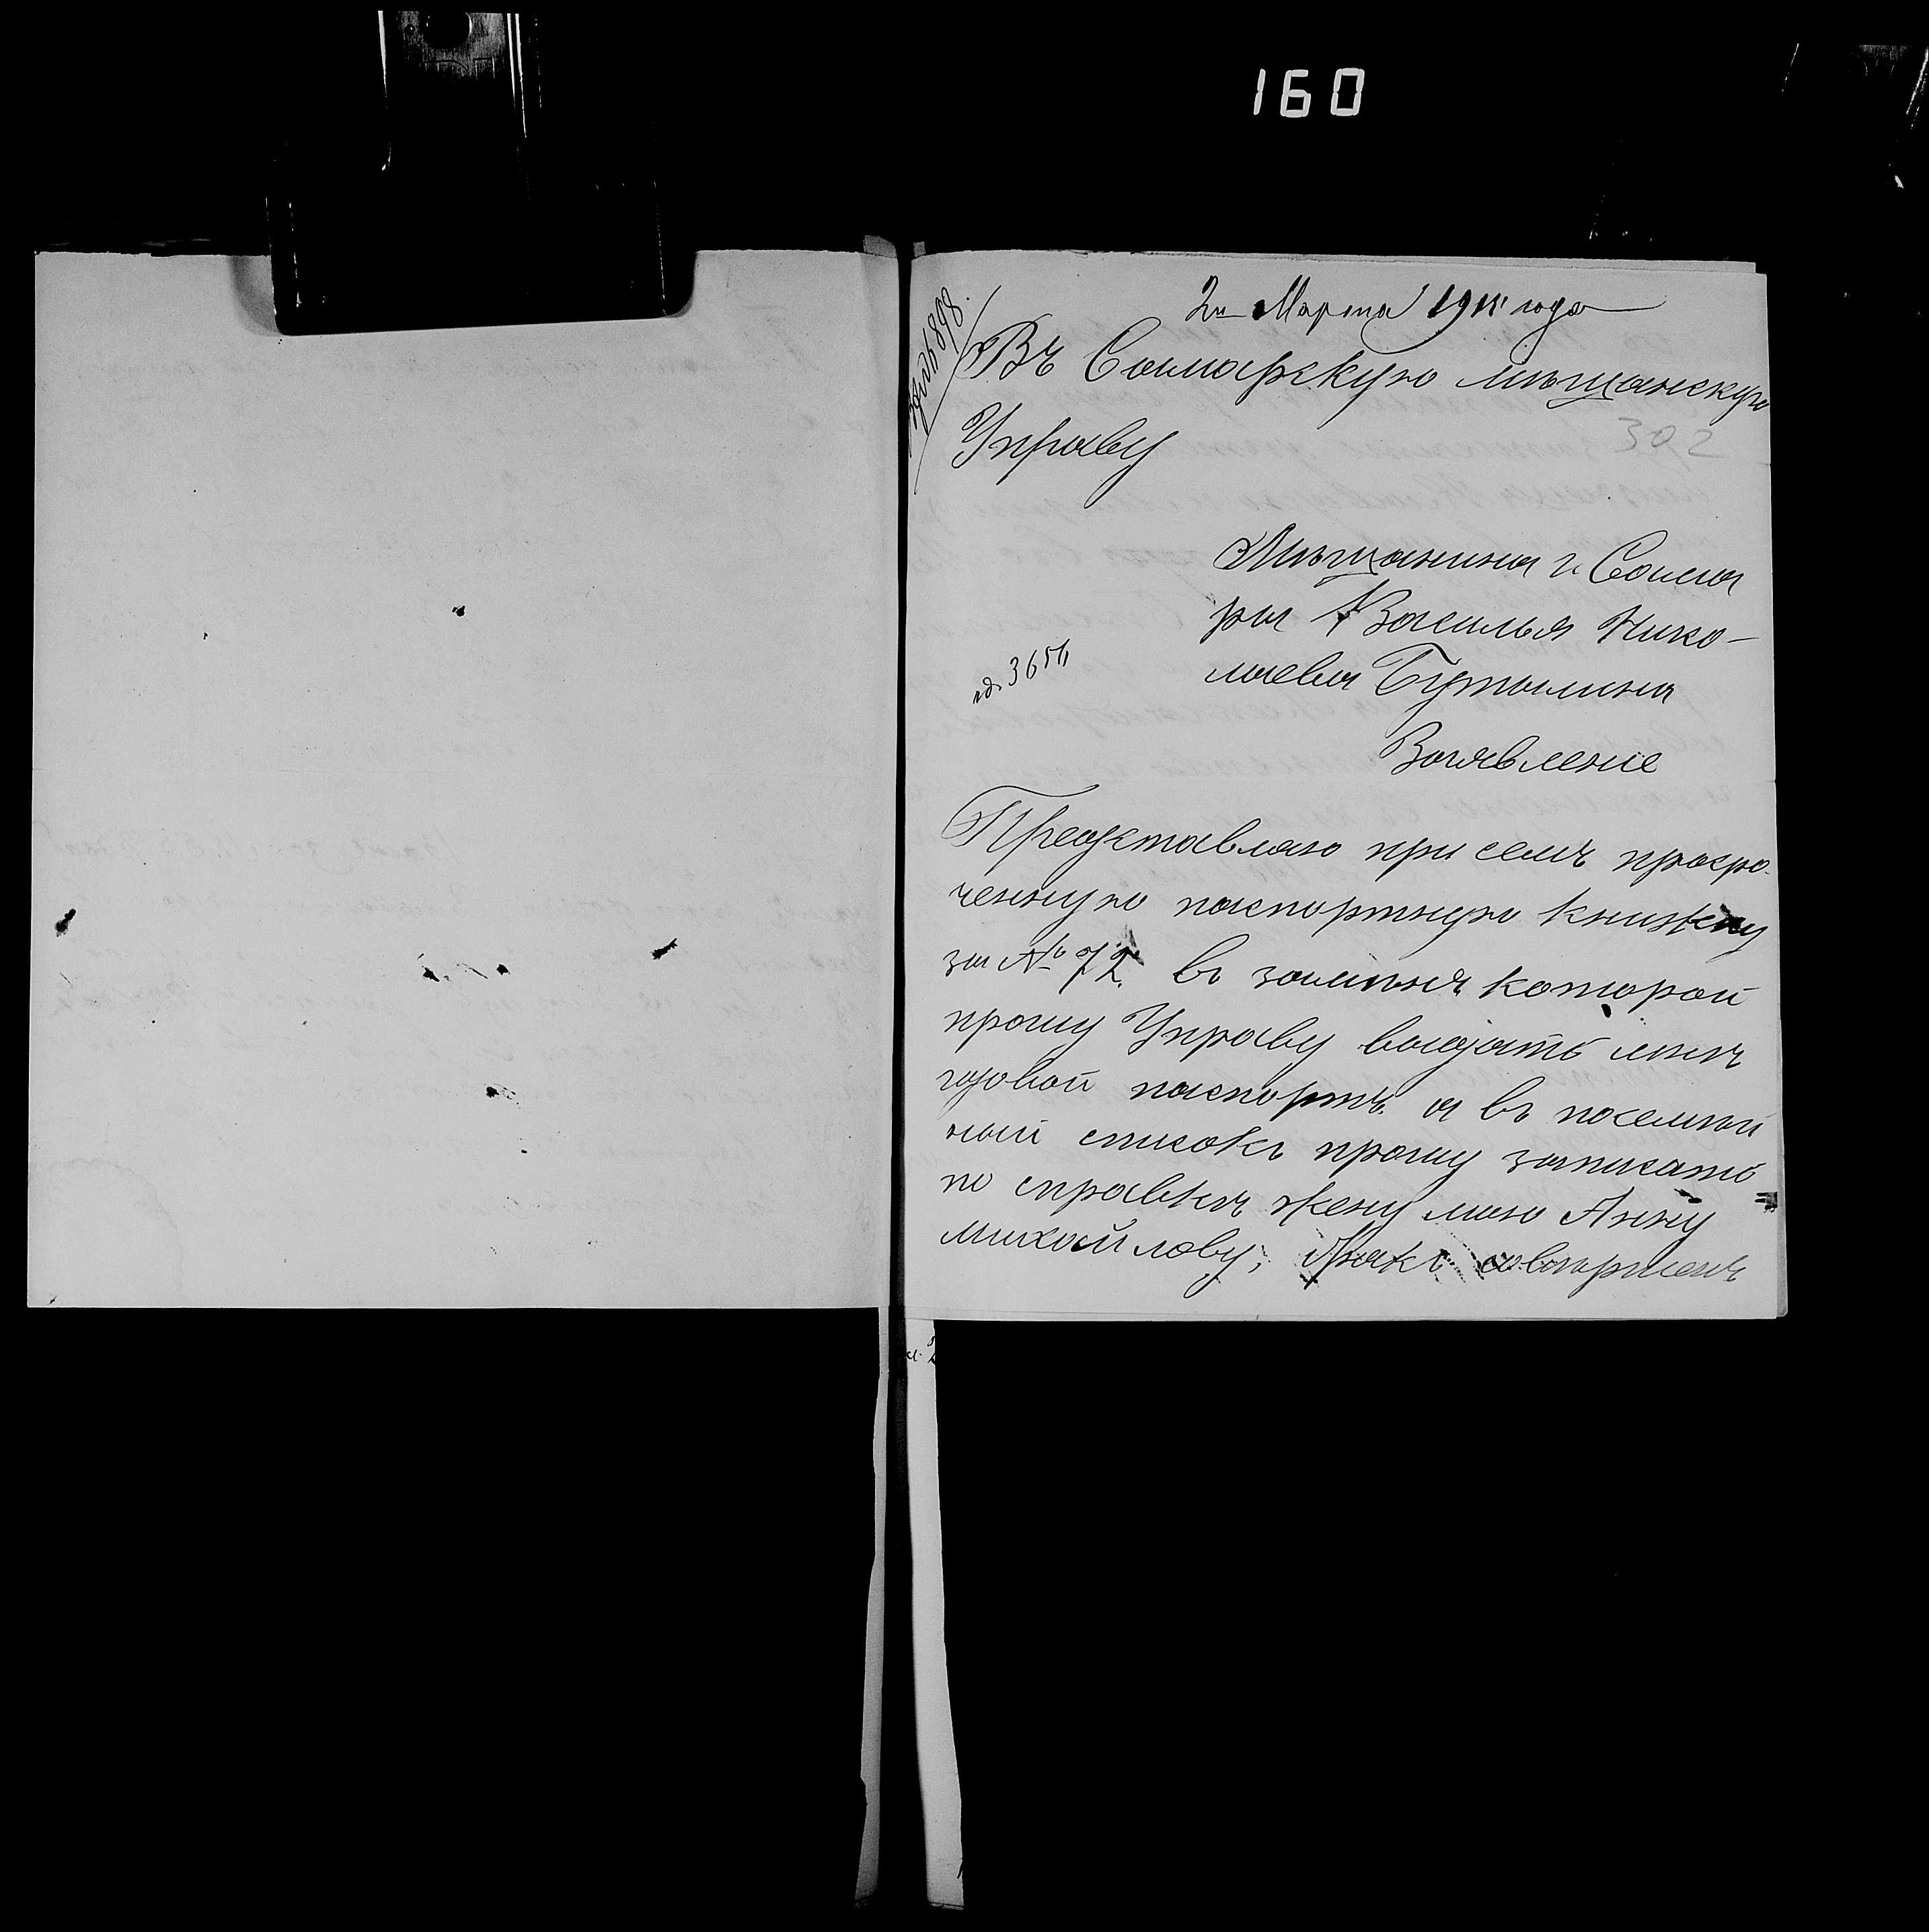 160
2го Марта 1911 года
Въ Самарскую мѣщанскую
Управу
302
Мѣщанина г. Сама
ры Василья Нико-
лаева Бутылина
3654
Заявление
Представляю при семъ просро-
ченную паспортную книжку
за № 72. въ замѣнъ которой
прошу Управу выдать мнѣ
годовой паспортъ а въ посемѣй
ный списокъ прошу записать
по справкѣ жену мою Анну
михайлову,